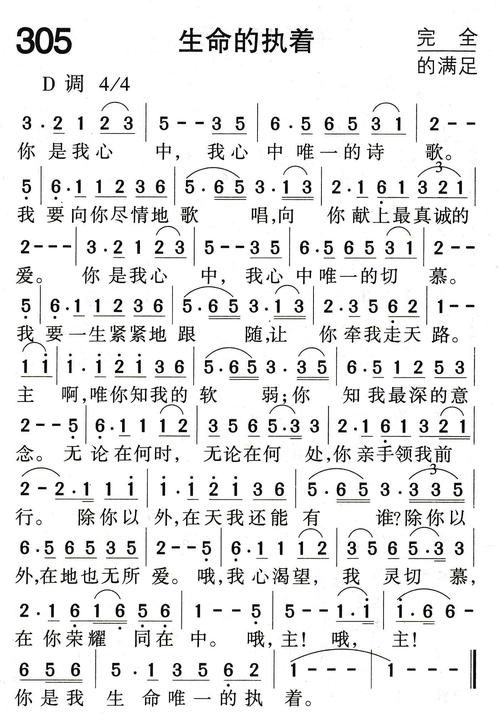 305 生命的执着 完全
的满足
D 调 4/4
3 . 2 1 2 3 | 5 - - 3 5 | 6 . 5 6 5 3 1 | 2 - -
你 是我心 中， 我心 中唯一的诗 歌。
5 | 6 . 1 1 2 3 6 | 5 . 6 5 3 . 1 3 | 2 . 1 6 1 3 2 1
我 要向你尽情地 歌 唱,向 你献上最真诚的
2 - - - | 3 . 2 1 2 3 | 5 - - 3 5 | 6 . 6 5 3 5 3 1 |
爱。 你是我心 中，我心中唯一的切
2 - -
慕。
5 | 6 . 1 1 2 3 6 | 5 . 6 5 3 . 1 3 | 2 . 3 5 6 2 | 1 - -
我 要一生紧紧地 跟 随,让 你牵我走天路。
1 1 | 1 . 1 2 1 3 6 | 5 . 6 5 3 . 3 5 | 6 . 5 1 2 5 3
主 啊,唯你知我的 软 弱;你 知我最深的意
2 - - 5 | 6 . 1 1 1 2 | 3 5 6 5 . 3 3 | 2 . 1 6 1 3 2 1
念。 无论在何时， 无论在何 处,你亲手领我前
2 - 2 . 1 1 1 | 1 . 1 2 1 3 6 | 5 . 6 5 3 . 3 3 5
行。 除你以 外,在天我还能有 谁?除你以
6 . 5 6 5 3 5 | 2 - - 5 | 6 . 1 1 2 | 3 5 6 5 . 3 3
外,在地也无所 爱。哦,我心渴望， 我 灵切 慕，
2 . 1 6 1 6 5 6 | 1 - - 5 | 5 - - 1 . 1 | 1 . 6 - -
在你荣耀 同在中。 哦,主! 哦， 主!
6 5 6 | 5 . 1 3 5 6 2 | 1 - - - | 1 - - -
你是我 生 命唯一的执 着。